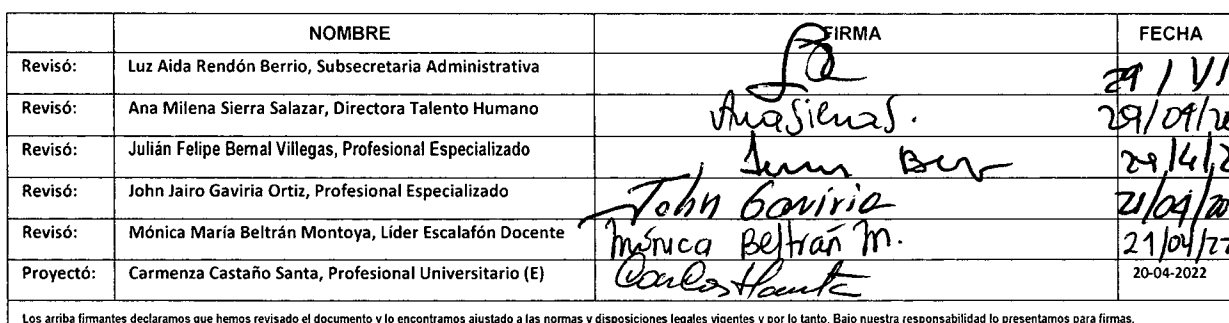 NOMBRE FIRMA FECHA
Revisó: Luz Aida Rendón Berrio, Subsecretaria Administrativa 29/
Revisó: Ana Milena Sierra Salazar, Directora Talento Humano AnaSierraS. 29/04/
Revisó: Julián Felipe Bernal Villegas, Profesional Especializado 29/4/2
Revisó: John Jairo Gaviria Ortiz, Profesional Especializado John Gaviria 21/04/20
Revisó: Mónica María Beltrán Montoya, Líder Escalafón Docente Mónica Beltrán M. 21/04/22
Proyectó: Carmenza Castaño Santa, Profesional Universitario (E) 20-04-2022
Los arriba firmantes declaramos que hemos revisado el documento y lo encontramos ajustado a las normas y disposiciones legales vigentes y por lo tanto. Bajo nuestra responsabilidad lo presentamos para firmas.